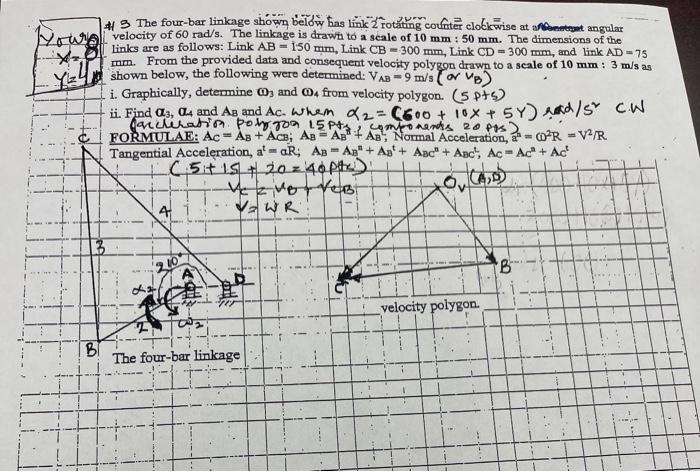 Your
X = 8
Y = 4
# 3 The four-bar linkage shown below has link 2 rotating counter clockwise at a angular
velocity of 60 rad/s. The linkage is drawn to a scale of 10 mm : 50 mm. The dimensions of the
links are as follows: Link AB = 150 mm, Link CB = 300 mm, Link CD = 300 mm, and link AD = 75
mm. From the provided data and consequent velocity polygon drawn to a scale of 10 mm : 3 m/s as
shown below, the following were determined: VAB = 9 m/s (or VB)
i. Graphically, determine ω3 and ω4 from velocity polygon. (5 pts)
ii. Find α3, α4 and AB and AC. When α2 = (600 + 10X + 5Y) rad/s² C.W
(acceleration polygon 15 pts, components 20 pts)
FORMULAE: AC = AB + ACB; AB = ABn + ABt; Normal Acceleration, an = ω²R = V²/R
Tangential Acceleration, at = αR; AB = ABn + ABt + ABCn + ABCt; AC = ACn + ACt
(5 + 15 + 20 = 40 pts)
VC = VB + VCB
V = WR
Ov (A,D)
C
4
3
210°
A
D
α2
B
C
2
ω2
velocity polygon
B
The four-bar linkage